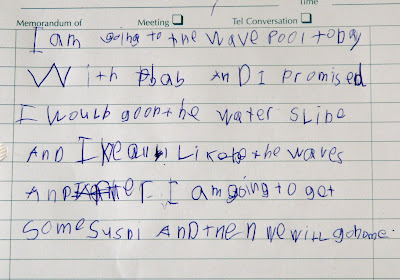 Time
Memorandum of Meeting Tel Conversation
I am going to the wave Pool tobay
With Dbab AnD I promised
I woulb goonthe water slibe
AnD I Like the waves
AnD I am going to get
some susni AnD then we will gohome.